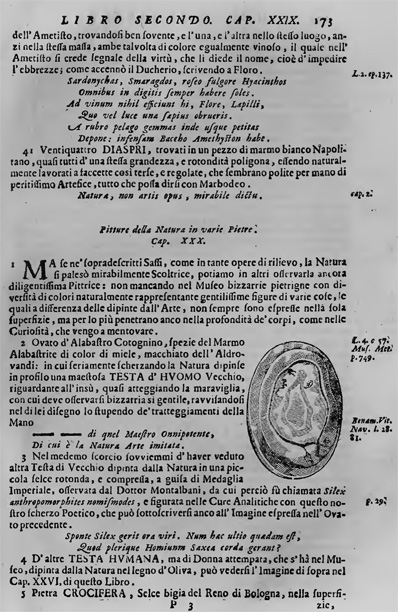 LIBRO SECONDO. CAP. XXIX. 173
dell' Ametisto, trovandosi ben sovente, e l'una, e l'altra nello stesso luogo, an-
zi nella stessa massa, ambe talvolta di colore egualmente vinoso, il quale nell'
Ametisto si crede segnale della virtù, che li diede il nome, cioè d'impedire
l'ebbrezze; come accennò il Ducherio, scrivendo a Floro.
L.2. ep.137.
Sardonychas, Smaragdos, roso fulgore Hyacinthos
Omnibus in digitis semper habere soles.
Ad vinum nihil efficiunt hi, Flore, Lapilli,
Quo vel luce una sæpius obrueris.
A rubro pelago gemmas inde usque petitas
Depone: infensam Bacebo Amethyston habe.
41 Ventiquattro DIASPRI, trovati in un pezzo di marmo bianco Napoli-
tano, quasi tutti d'una stessa grandezza, e rotondità poligona, essendo natural-
mente lavorati a faccette così terse, e regolate, che sembrano polite per mano di
peritissimo Artefice, tutto che possa dirsi con Marbodeo.
Natura, non artis opus, mirabile dictu.
cap. 2.
Pitture della Natura in varie Pietre.
Cap. XXX.
1 MA se ne' sopradescritti Sassi, come in tante opere di rilievo, la Natura
si palesò mirabilmente Scoltrice, potiamo in altri osservarla ancora
diligentissima Pittrice: non mancando nel Museo bizzarrie pietrigne con di-
versità di colori naturalmente rappresentante gentilissime figure di varie cose, le
quali a differenza delle dipinte dall' Arte, non sempre sono espresse nella sola
superfizie, ma per lo più penetrano anco nella profondità de' corpi, come nelle
Curiosità, che vengo a mentovare.
2 Ovato d'Alabastro Cotognino, spezie del Marmo
Alabastrite di color di miele, macchiato dell' Aldro-
vandi: in cui seriamente scherzando la Natura dipinse
in profilo una maestosa TESTA d'HVOMO Vecchio,
riguardante all'insù, quasi atteggiando la maraviglia,
con cui deve osservarsi bizzarria sì gentile, ravvisandosi
nel di lei disegno lo stupendo de' tratteggiamenti della
Mano
L. 4. e 57.
Mus. Met.
p. 749.
di quel Maestro Onnipotente,
Di cui è la Natura Arte imitata.
Benam. Vit.
Nav. l. 28.
81.
3 Nel medemo scorcio sovviemmi d'haver veduto
altra Testa di Vecchio dipinta dalla Natura in una pic-
cola selce rotonda, e compressa, a guisa di Medaglia
Imperiale, osservata dal Dottor Montalbani, da cui perciò fù chiamata Silex
anthropomorphites nomismodes, e figurata nelle Cure Analitiche con questo no-
stro scherzo Poetico, che può sottoscriversi anco all' Imagine espressa nell' Ova-
to precedente.
p. 29.
Sponte Silex gerit ora viri. Num hac ultio quædam est,
Quod plerique Hominum Saxea corda gerant?
4 D'altre TESTA HVMANA, ma di Donna attempata, che s'hà nel Mu-
seo, dipinta dalla Natura nel legno d'Oliva, può vedersi l'Imagine di sopra nel
Cap. XXVI. di questo Libro.
5 Pietra CROCIFERA, Selce bigia del Reno di Bologna, nella superfi-
P 3 zie,